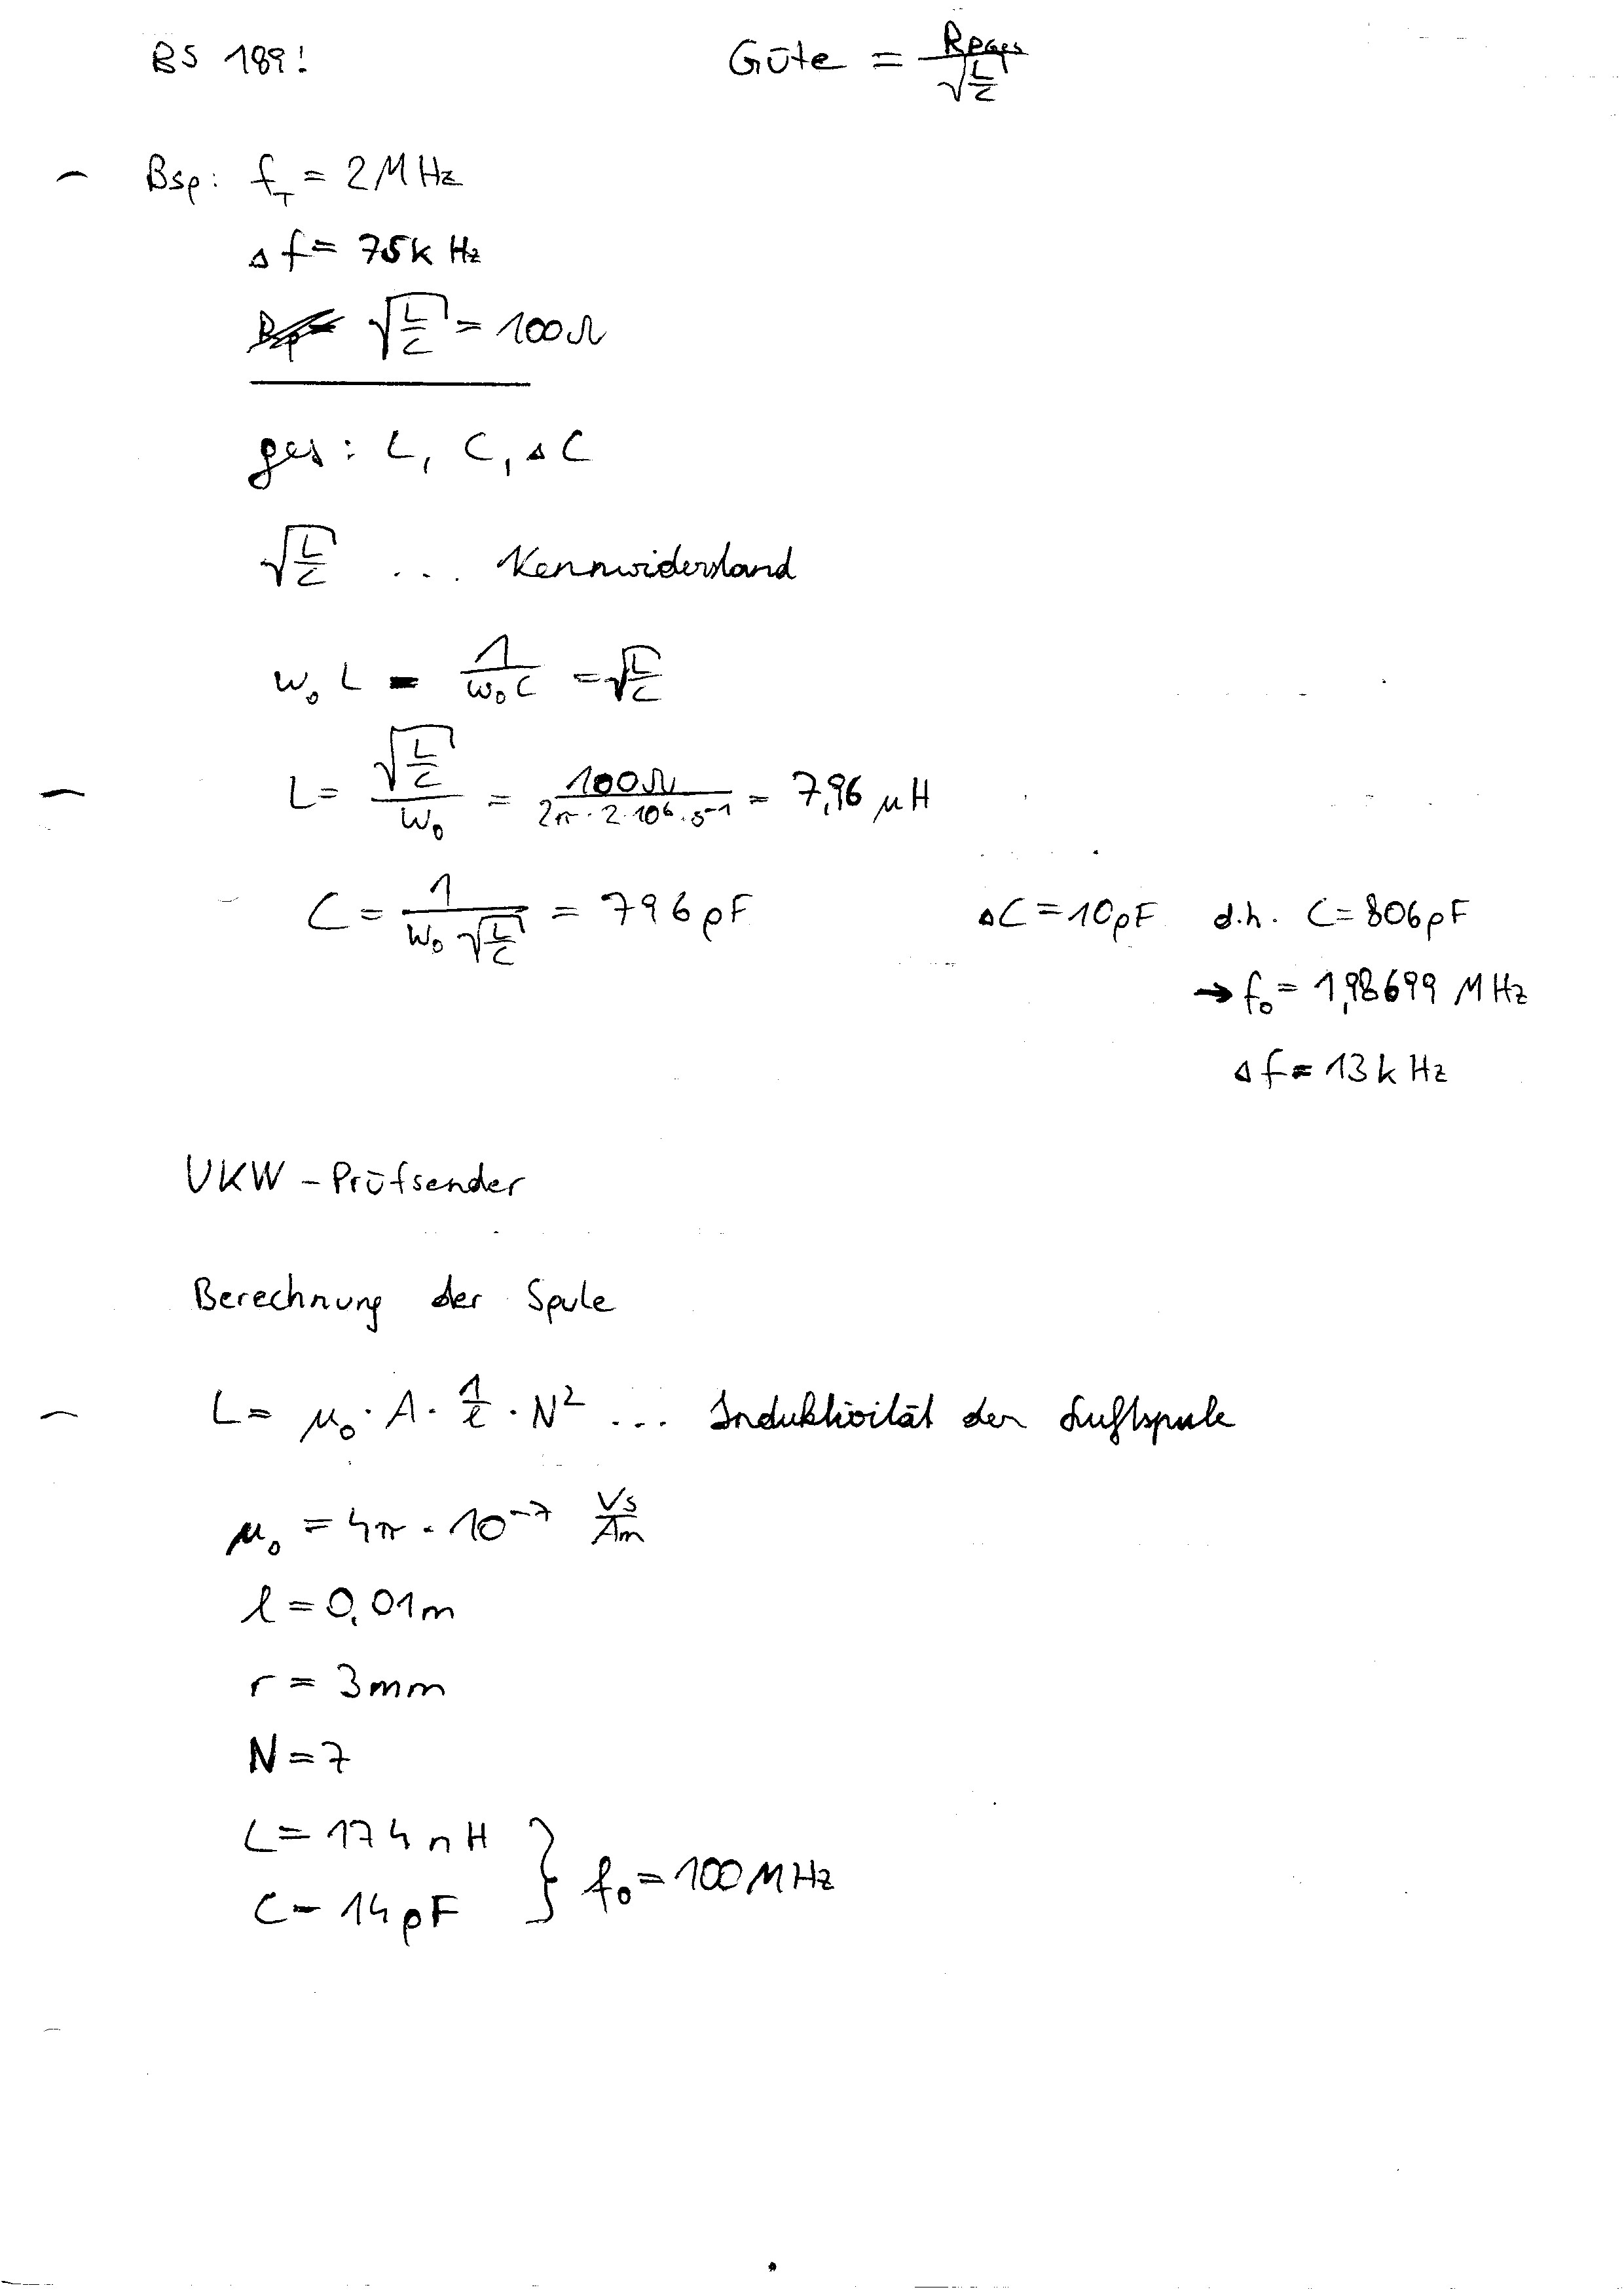 BS 189!
Güte = Rpges / √(L/C)
Bsp: f_T = 2MHz
Δf = 75kHz
√(L/C) = 100Ω
ges: L, C, ΔC
√(L/C) ... Kennwiderstand
w₀ L = 1/(w₀ C) = √(L/C)
L = √(L/C) / w₀ = 100Ω / (2π · 2·10⁶·s⁻¹) = 7,96 µH
C = 1/(w₀ √(L/C)) = 796pF
ΔC = 10pF d.h. C = 806pF
→ f₀ = 1,98699 MHz
Δf = 13kHz
UKW - Prüfsender
Berechnung der Spule
L = µ₀ · A · 1/l · N² ... Induktivität der Luftspule
µ₀ = 4π · 10⁻⁷ Vs/Am
l = 0,01m
r = 3mm
N = 7
L = 174nH
C = 14pF
} f₀ = 100MHz